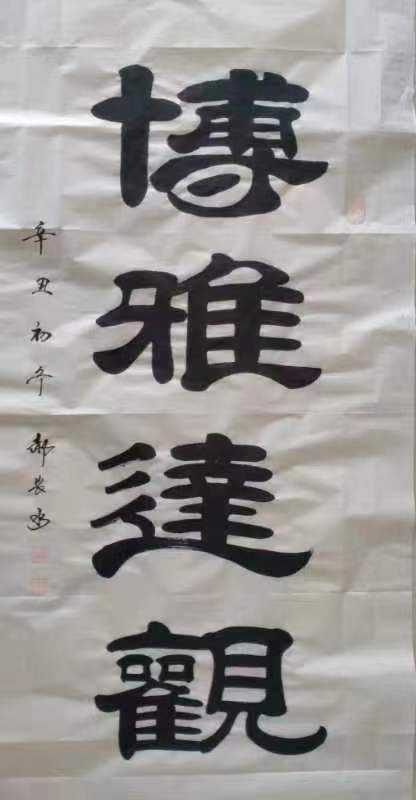 博雅達觀
辛丑初冬 郝長